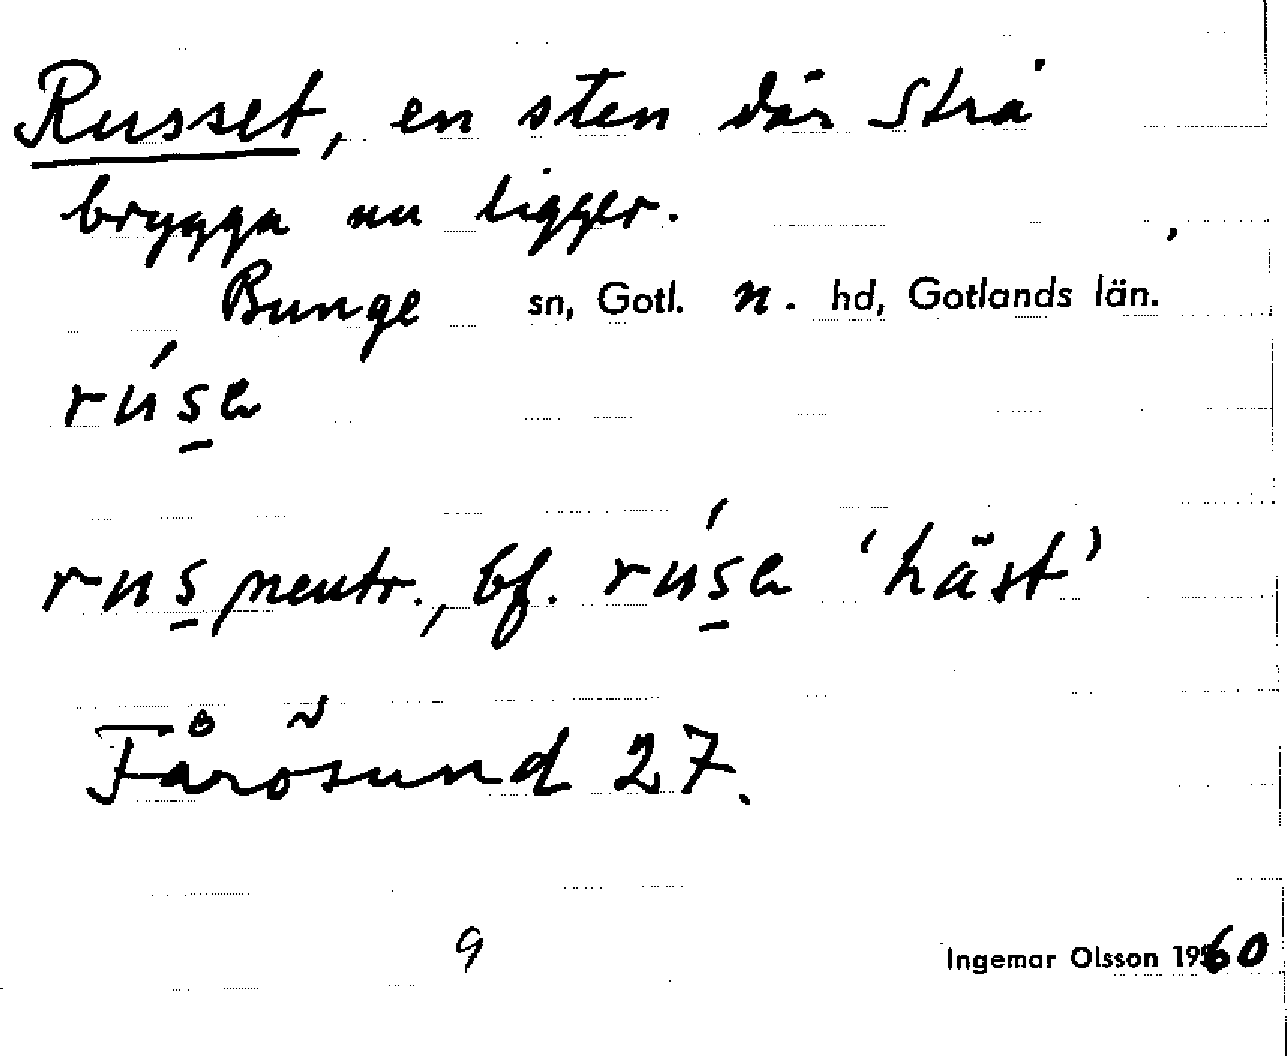 Russet, en sten där Strå
brygga nu ligger.
Bunge sn, Gotl. n. hd, Gotlands län.
rús̱a
rus̱ neutr., bf. rús̱a 'häst'
Fårösund 27.
9
Ingemar Olsson 1960